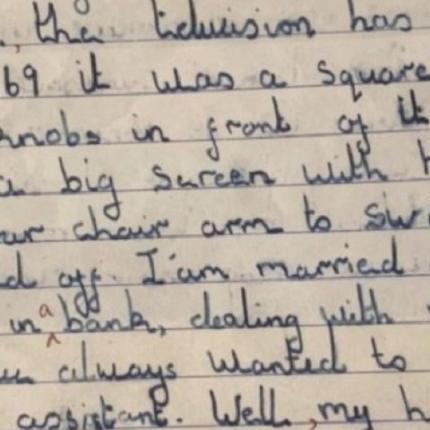 , the television has
69 it was a square
knobs in front of it
a big screen with
ur chair arm to sw
d off. I'am married
in a bank, dealing with
always wanted to
assistant. Well, my h